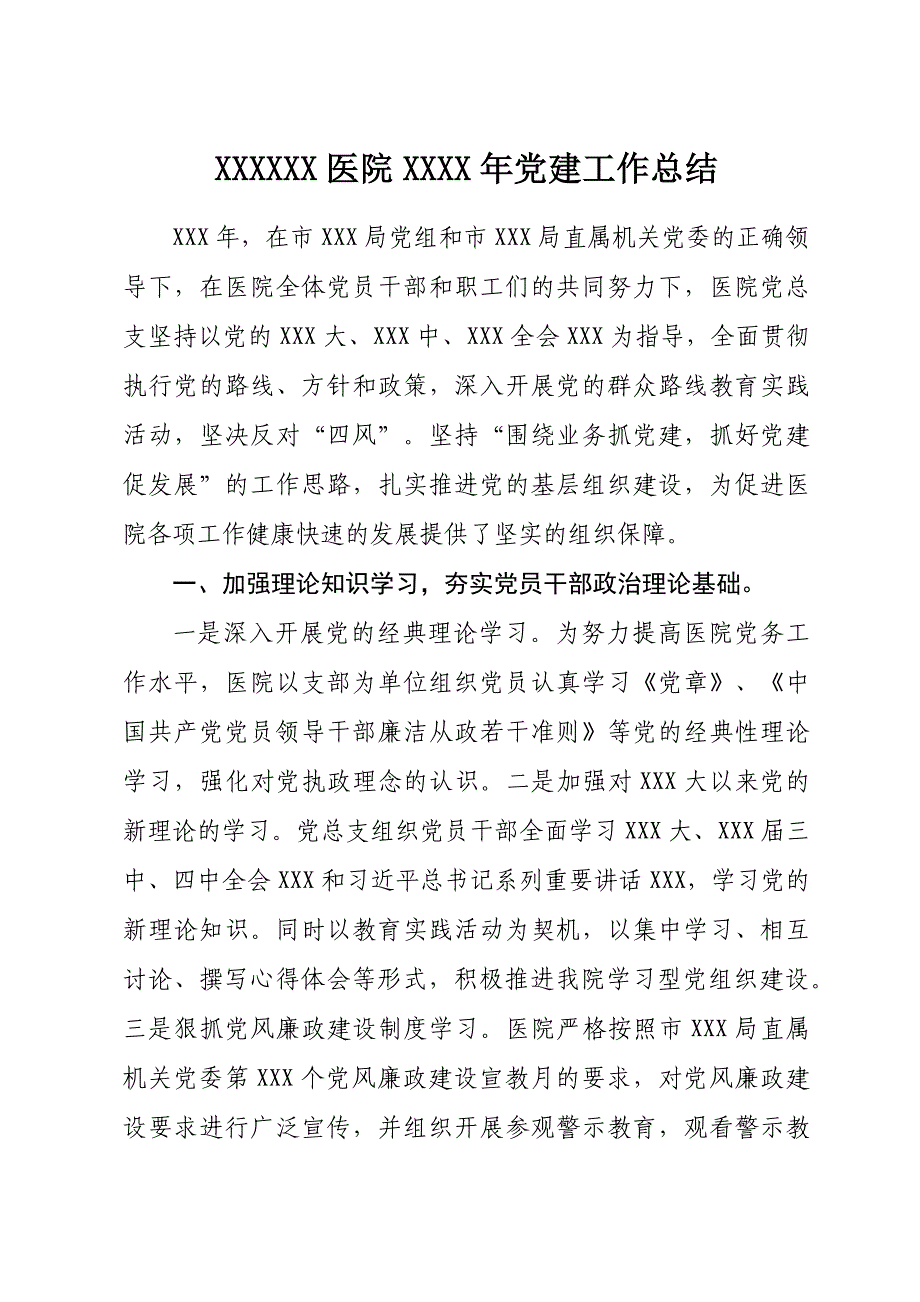 XXXXXX 医院 XXXX 年党建工作总结
XXX 年，在市 XXX 局党组和市 XXX 局直属机关党委的正确领
导下，在医院全体党员干部和职工们的共同努力下，医院党总
支坚持以党的 XXX 大、XXX 中、XXX 全会 XXX 为指导，全面贯彻
执行党的路线、方针和政策，深入开展党的群众路线教育实践
活动，坚决反对“四风”。坚持“围绕业务抓党建，抓好党建
促发展”的工作思路，扎实推进党的基层组织建设，为促进医
院各项工作健康快速的发展提供了坚实的组织保障。
一、加强理论知识学习，夯实党员干部政治理论基础。
一是深入开展党的经典理论学习。为努力提高医院党务工
作水平，医院以支部为单位组织党员认真学习《党章》、《中
国共产党党员领导干部廉洁从政若干准则》等党的经典性理论
学习，强化对党执政理念的认识。二是加强对 XXX 大以来党的
新理论的学习。党总支组织党员干部全面学习 XXX 大、XXX 届三
中、四中全会 XXX 和习近平总书记系列重要讲话 XXX，学习党的
新理论知识。同时以教育实践活动为契机，以集中学习、相互
讨论、撰写心得体会等形式，积极推进我院学习型党组织建设。
三是狠抓党风廉政建设制度学习。医院严格按照市 XXX 局直属
机关党委第 XXX 个党风廉政建设宣教月的要求，对党风廉政建
设要求进行广泛宣传，并组织开展参观警示教育，观看警示教